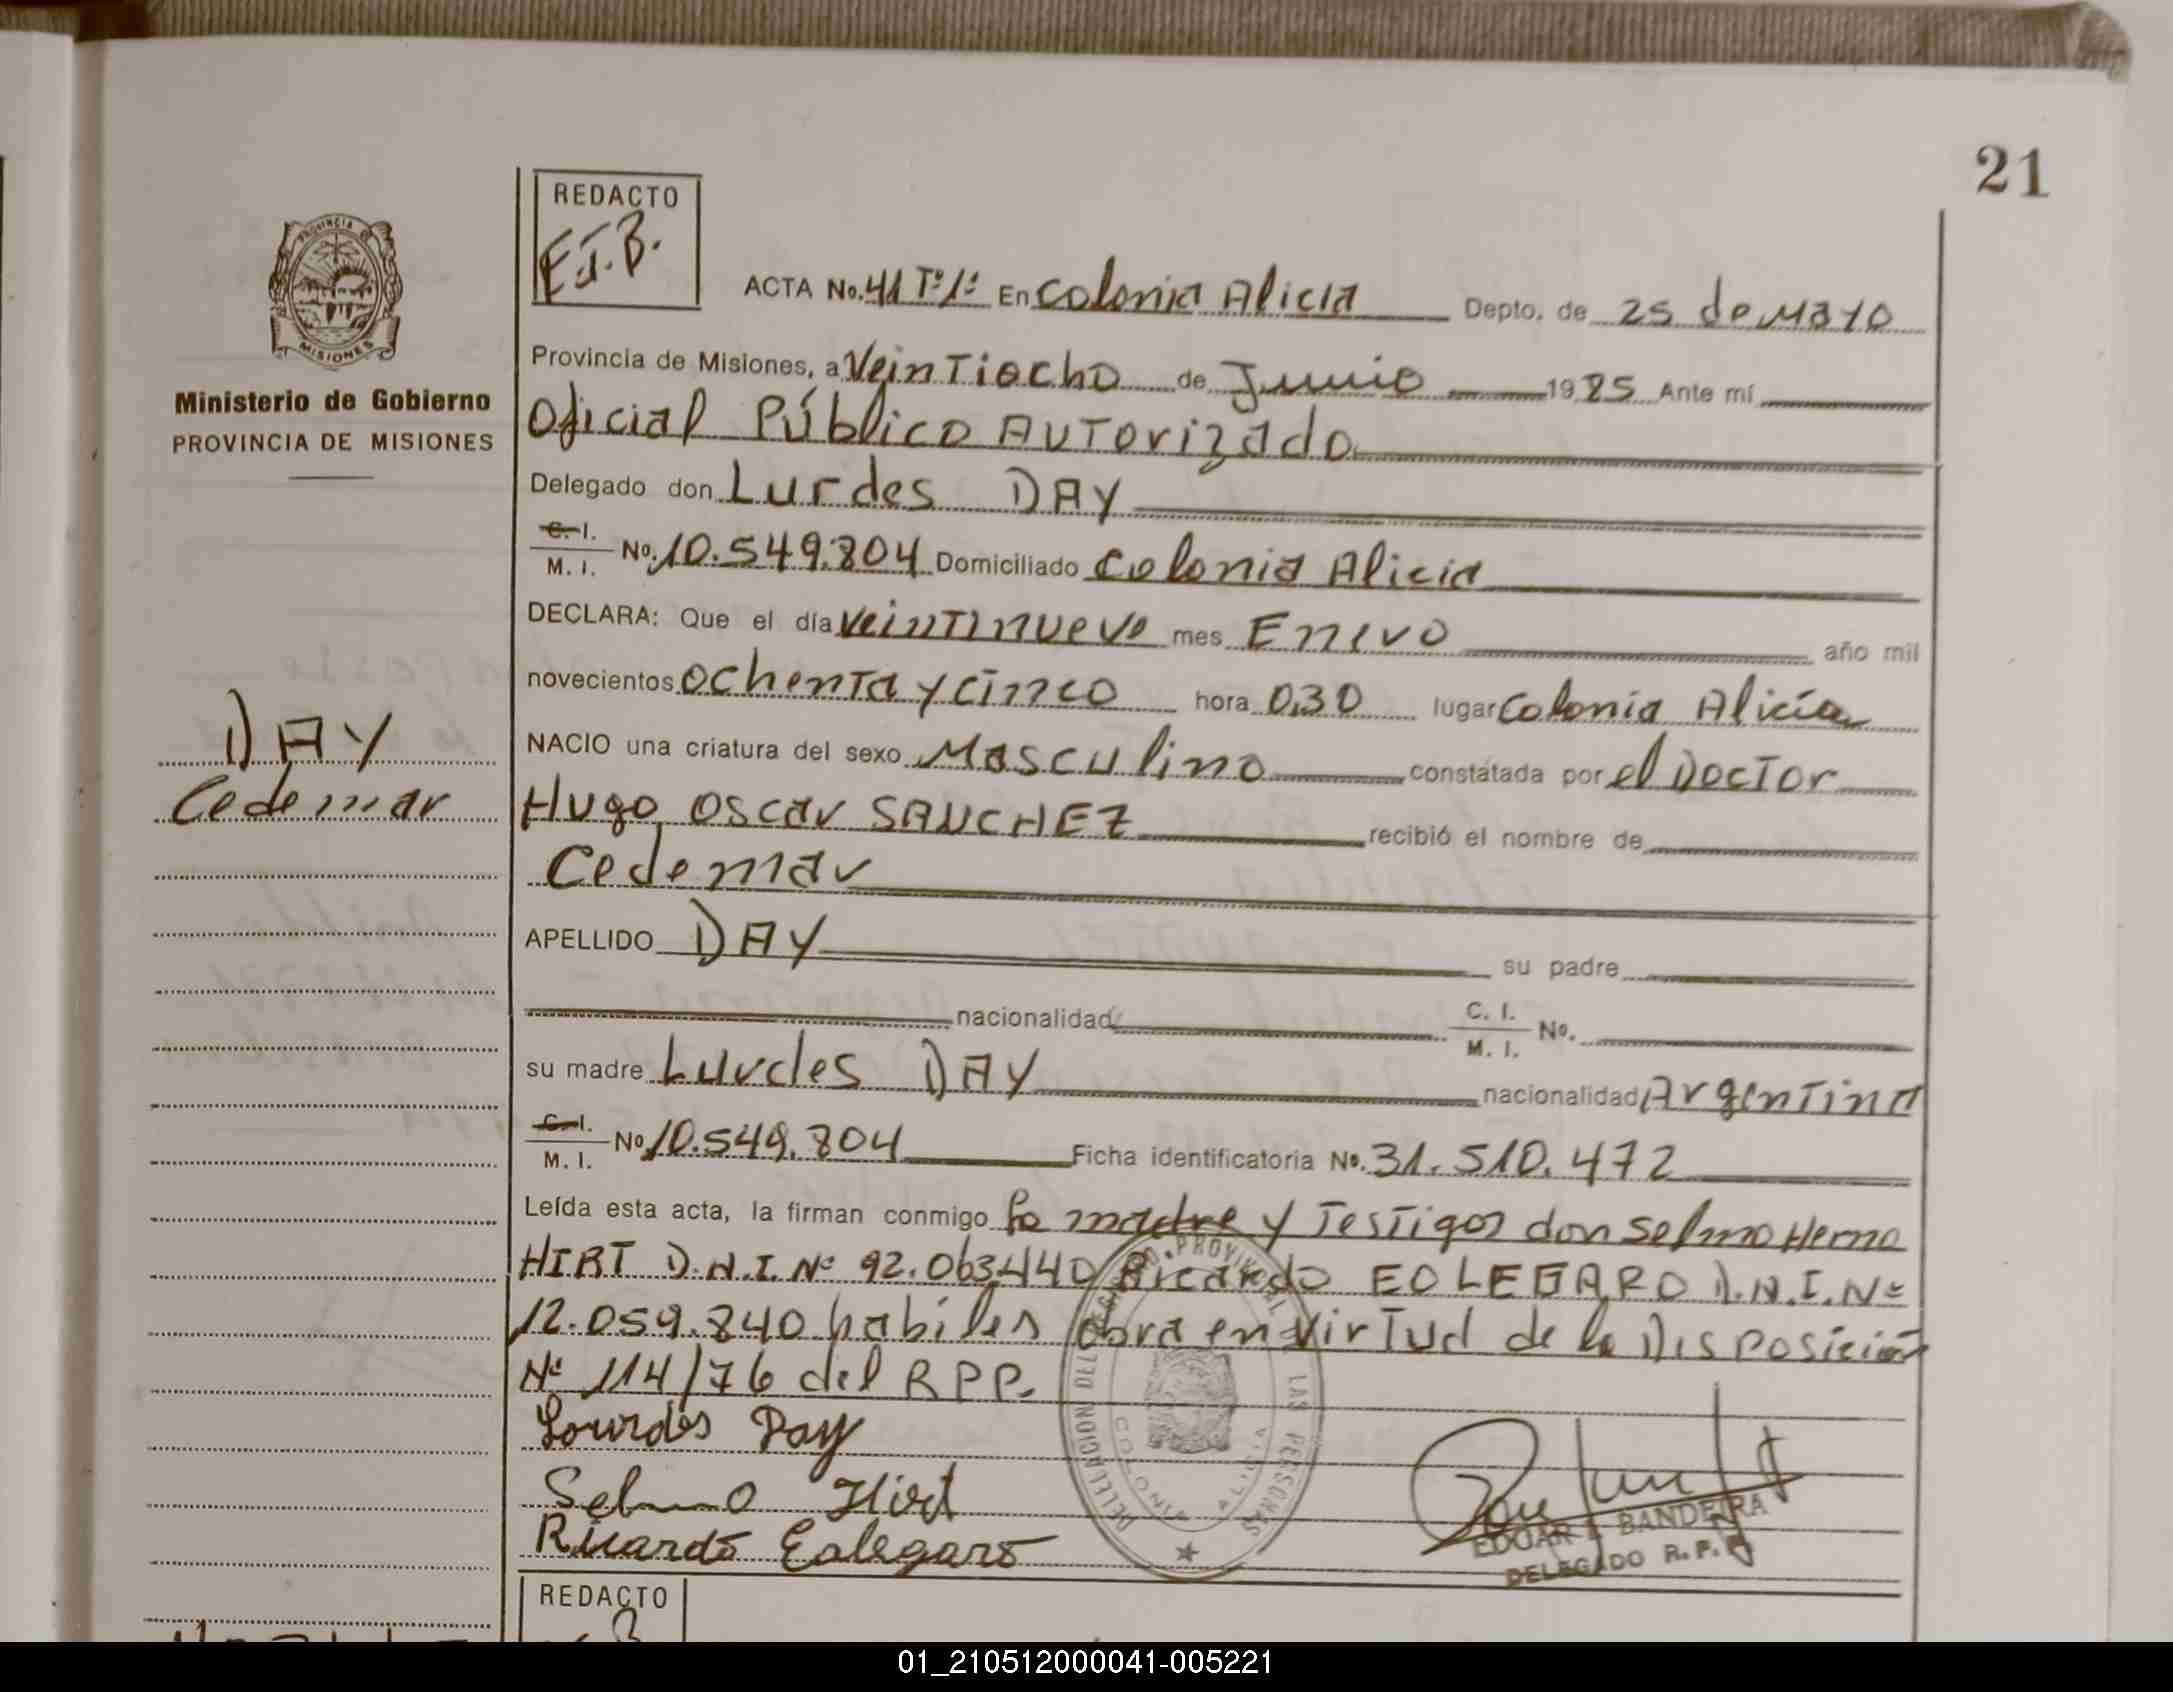 21
REDACTO
E.J.B.
ACTA No. 41 Tº 1º En Colonia Alicia Depto. de 25 de Mayo
Provincia de Misiones, a Veintiocho de Junio 1985 Ante mí
Oficial Público Autorizado
Delegado don Lurdes DAY
C. I.
M. I. Nº. 10.549.804 Domiciliado Colonia Alicia
DECLARA: Que el día Veintinueve mes Enero año mil
novecientos ochenta y cinco hora 0,30 lugar Colonia Alicia
NACIO una criatura del sexo Masculino constatada por el Doctor
Hugo Oscar SANCHEZ recibió el nombre de
Cedemar
APELLIDO DAY su padre
nacionalidad C. I.
M. I. Nº.
su madre Lurdes DAY nacionalidad Argentina
C. I.
M. I. Nº 10.549.804 Ficha identificatoria Nº. 31.510.472
Leída esta acta, la firman conmigo la madre y Testigos don Selmo Herno
HIRT D.N.I. Nº 92.063.440 Ricardo EOLEGARO D.N.I. Nº
12.059.840 habiles obra en virtud de la Disposición
Nº 114/76 del RPP.
Lourdes Day
Selmo Hirt
Ricardo Eolegaro
PROVINCIA
MISIONES
Ministerio de Gobierno
PROVINCIA DE MISIONES
DAY
Cedemar
LAS PERSONAS
COLONIA ALICIA
EDGAR BANDEIRA
DELEGADO R.P.P.
REDACTO
01_210512000041-005221